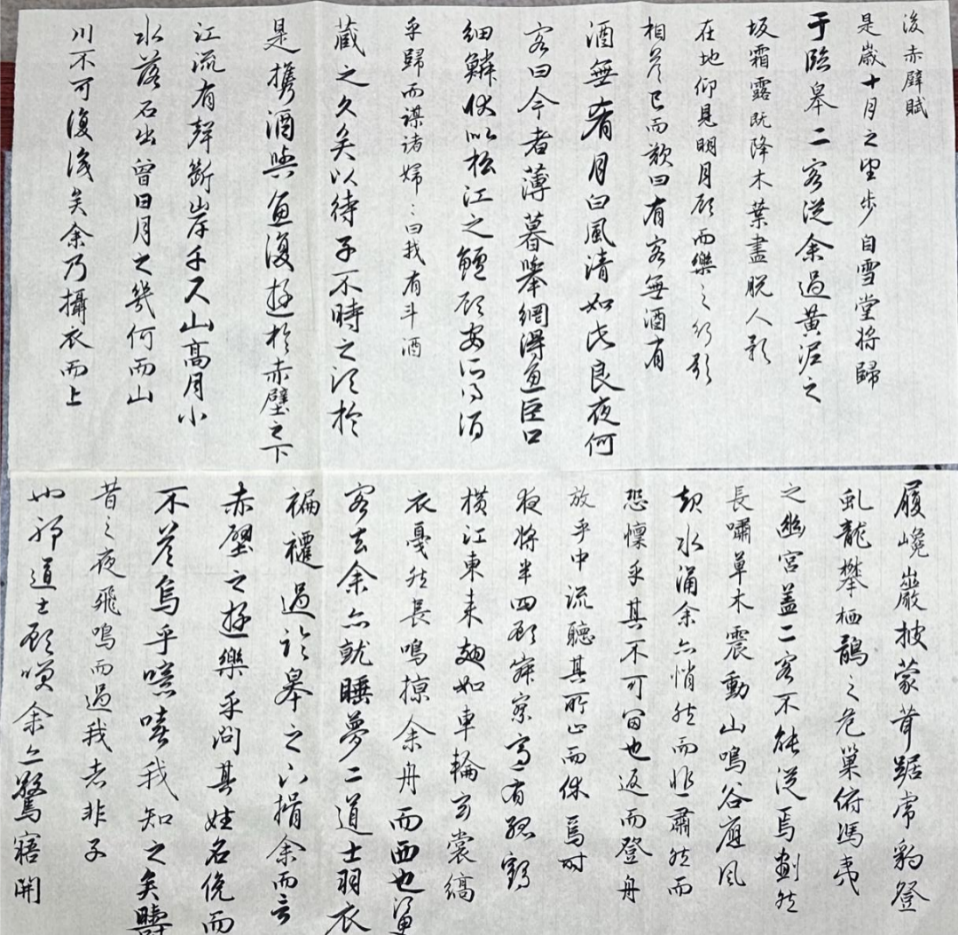 後赤壁賦
是歲十月之望步自雪堂將歸
于臨皋二客從余過黃泥之
坂霜露既降木葉盡脫人影
在地仰見明月顧而樂之行歌
相答已而歎曰有客無酒有
酒無肴月白風清如此良夜何
客曰今者薄暮舉網得魚巨口
細鱗狀似松江之鱸顧安所得酒
乎歸而謀諸婦:曰我有斗酒
藏之久矣以待子不時之須於
是携酒與魚復遊於赤壁之下
江流有聲斷岸千尺山高月小
水落石出曾日月之幾何而山
川不可復識矣余乃攝衣而上
履巉巖披蒙茸踞虎豹登
虬龍攀栖鶻之危巢俯馮夷
之幽宮蓋二客不能從焉劃然
長嘯草木震動山鳴谷應風
起水涌余亦悄然而悲肅然而
恐懍乎其不可留也返而登舟
放乎中流聽其所止而休焉時
夜將半四顧寂寥適有孤鶴
橫江東來翅如車輪玄裳縞
衣戛然長鳴掠余舟而西也須
客去余亦就睡夢二道士羽衣
褊褼過臨皋之下揖余而言
赤壁之遊樂乎問其姓名俛而
不答烏乎噫嘻我知之矣疇
昔之夜飛鳴而過我者非子
也邪道士顧笑余亦驚寤開